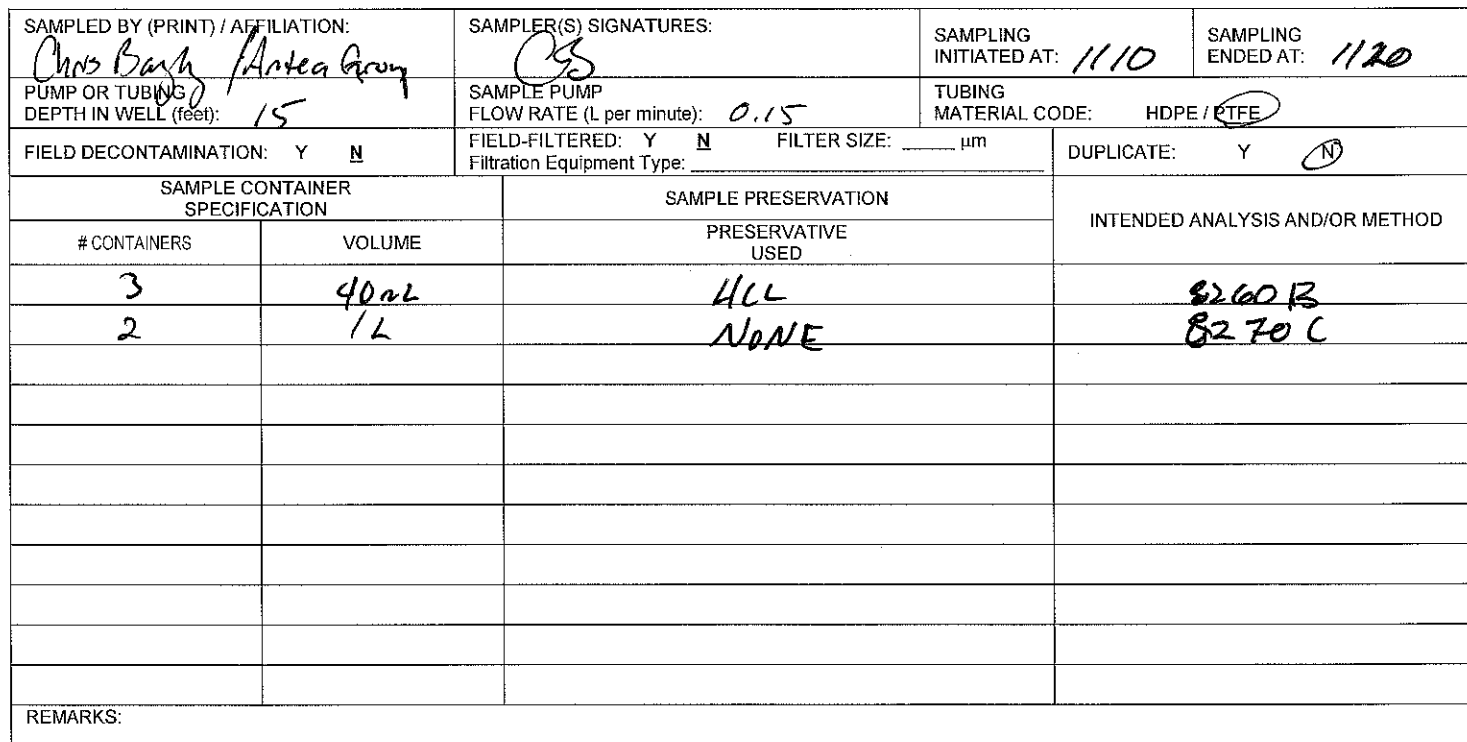 SAMPLED BY (PRINT) / AFFILIATION:
Chris / Antea Group
SAMPLER(S) SIGNATURES:
SAMPLING
INITIATED AT: 1110
SAMPLING
ENDED AT: 1120
PUMP OR TUBING
DEPTH IN WELL (feet): 15
SAMPLE PUMP
FLOW RATE (L per minute): 0.15
TUBING
MATERIAL CODE: HDPE / PTFE
FIELD DECONTAMINATION: Y N
FIELD-FILTERED: Y N FILTER SIZE: _____ μm
Filtration Equipment Type:
DUPLICATE: Y N
SAMPLE CONTAINER
SPECIFICATION
SAMPLE PRESERVATION
INTENDED ANALYSIS AND/OR METHOD
# CONTAINERS VOLUME PRESERVATIVE
USED
3 40mL HCL 8260B
2 1L NONE 8270C
REMARKS: